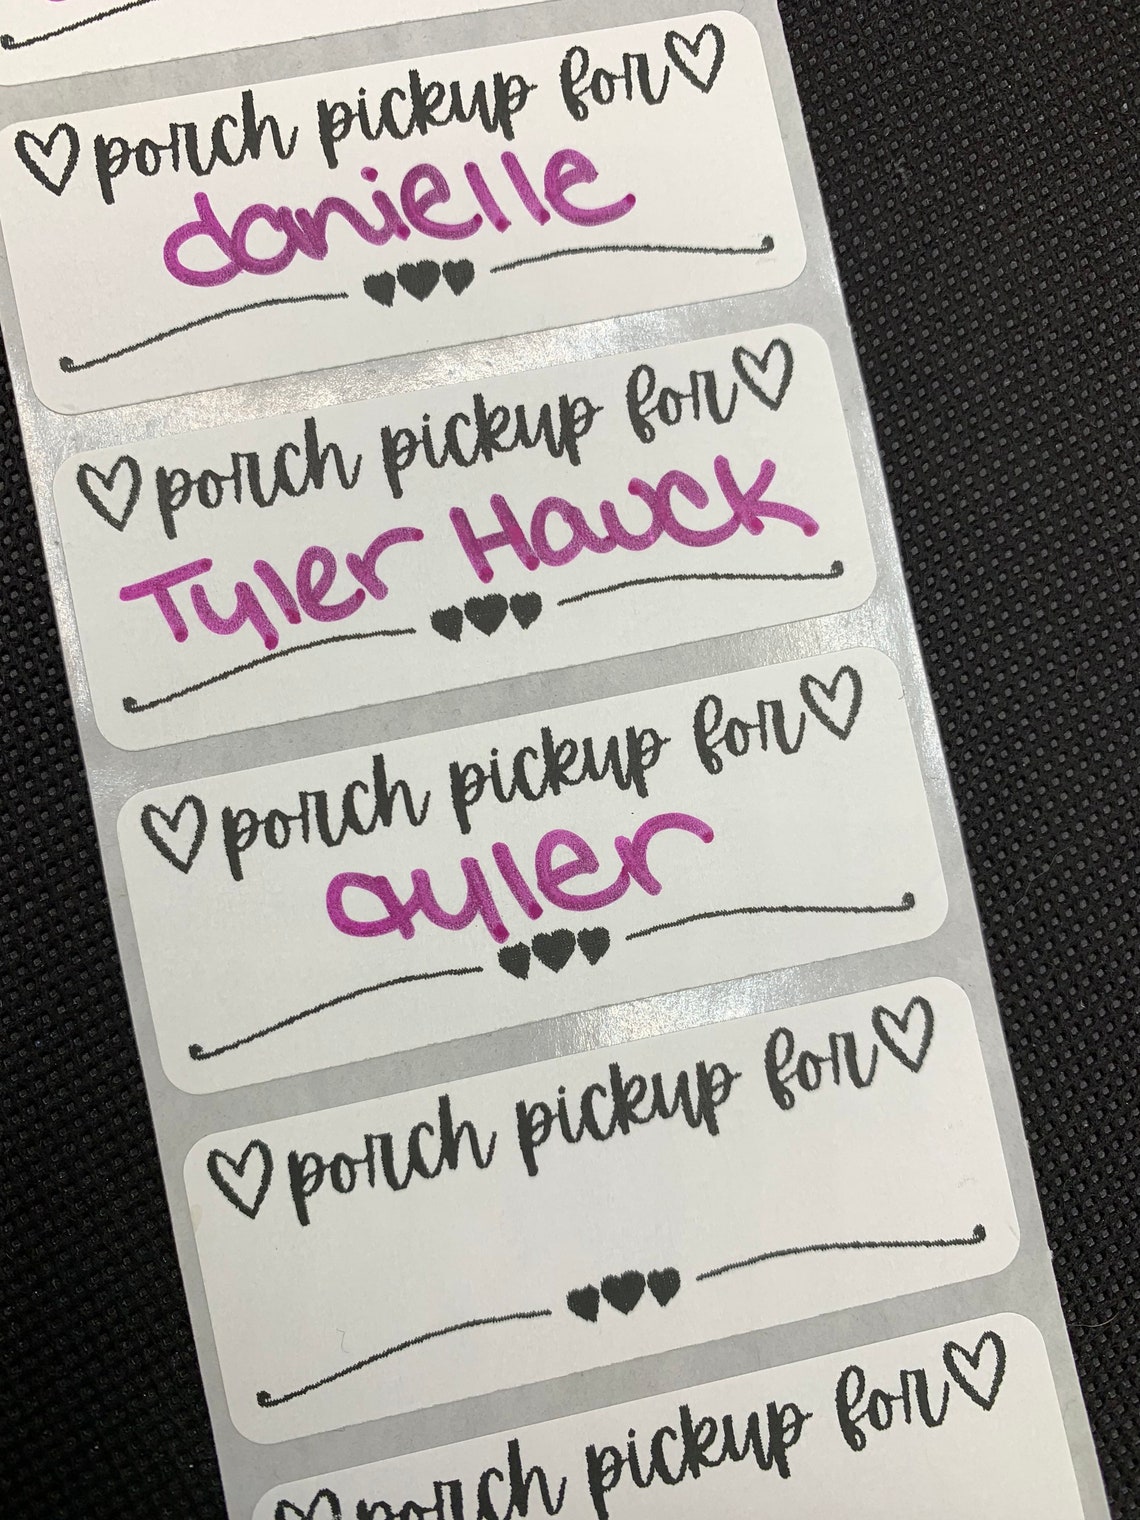 ♡porch pickup for♡
danielle
♡porch pickup for♡
Tyler Hauck
♡porch pickup for♡
ayler
♡porch pickup for♡
♡porch pickup for♡